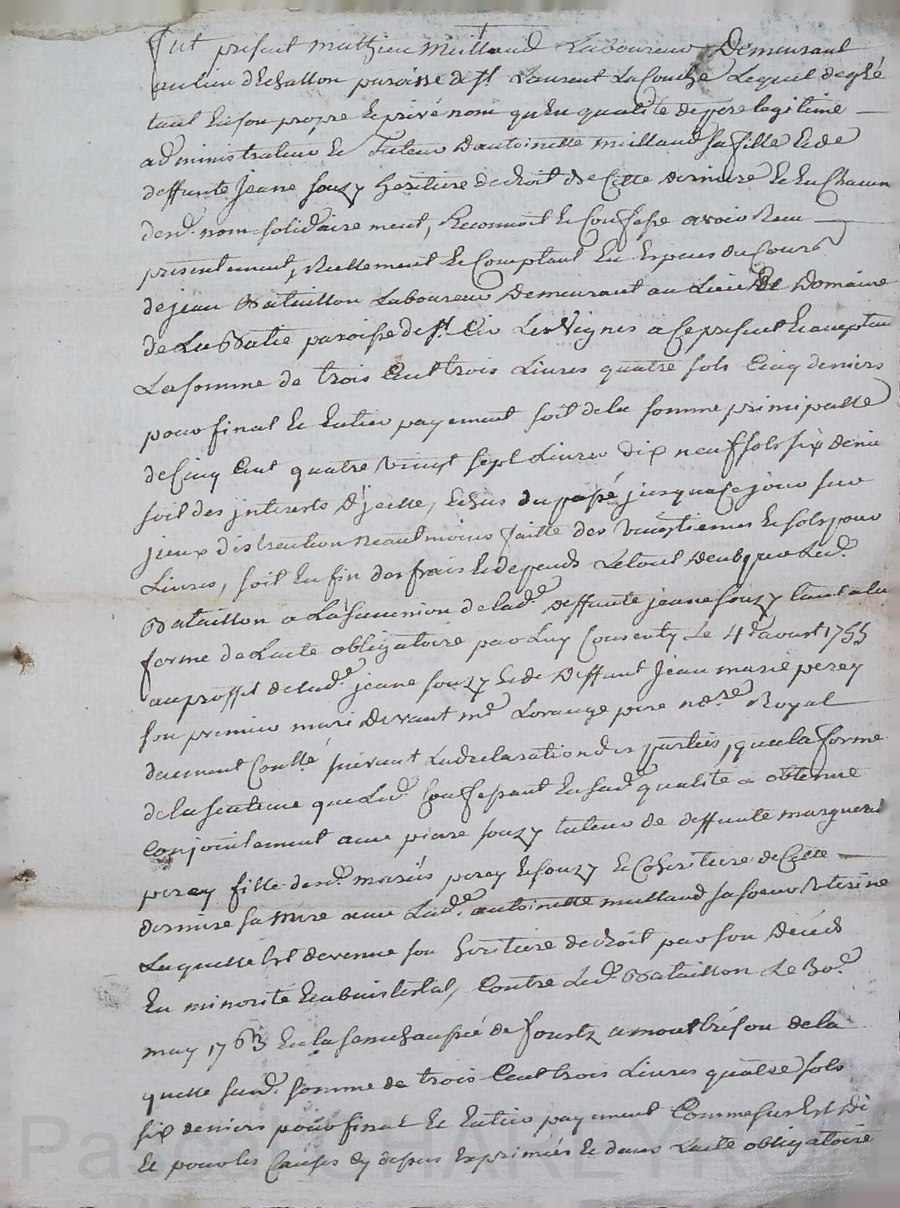 Fut present mathieu meilland Laboureur Demeurant
au lieu d'Echallon paroisse de st Laurent La Conche Lequel de gré
tant En son propre et privé nom qu'en qualité de père legitime
administrateur et Tuteur D'antoinette meilland sa fille et de
deffunte Jeane souzy heritiere de droit de Cette derniere et En Chacun
desd. nom solidairement, Reconnoit et Confesse avoir Receu
presentement, Reellement et Comptant En Especes du Cours
de jean Bataillon Laboureur Demeurant au Lieu et Domaine
de La Batie paroisse de st Cir Les Vignes a Ce present et acceptant
La somme de trois Cent trois Livres quatre sols Cinq deniers
pour final et Entier payement soit de la somme principalle
de Cinq Cent quatre vingt sept Livres dix neuf sols six denier
soit des jnterests d'jcelle, Echus du passé jusqua ce jour sur
jceux distraction Neautmoins faitte des vingtiemes et sols pour
Livres, soit En fin des frais et depends Le tout Deub par Led.
Bataillon a La succession de lad.e deffunte jeane souzy tant a la
forme de Lacte obligatoire par Luy Consenty Le 4e avoust 1755
au proffit de lad.e jeane souzy et de Deffunt Jean marie perey
son premier mari devant me Lorange pere no.re Royal
deument Conllé suivant La declaration des parties, qua la forme
de la sentence que Led. Confessant En sad.e qualité a obtenue
Conjointement avec pierre souzy tuteur de deffunte marguerite
perey fille desd. mariés perey et souzy et Coheritiere de Cette
derniere sa mere avec Lad.e antoinette meilland sa soeur Uterine
Laquelle Est devenue son heritiere de droit par son Décéd
En minorité et abintestat, Contre Led. Bataillon Le 30.e
may 1763 En la senechaussée de fourez a montbrison de la
quelle susd. somme de trois Cent trois Livres quatre sols
six deniers pour final et Entier payement Comme sus Est Di
et pour les Causes Cy dessus Exprimées et dans Lacte obligatoire
Pascal CHAREYRON